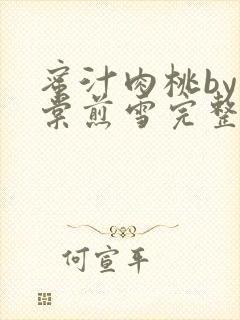 蜜汁肉桃by
棠煎雪完整
何宣平